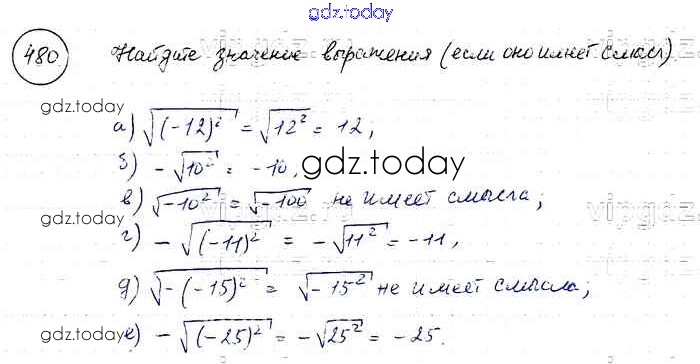 gdz.today
480 Найдите значение выражения (если оно имеет смысл)
gdz.today
а) √(-12)² = √12² = 12;
gdz.today
б) -√10² = -10,
в) √-10² = √-100 не имеет смысла;
gdz.today
г) -√(-11)² = -√11² = -11,
gdz.today
д) √-(-15)² = √-15² не имеет смысла;
gdz.today
е) -√(-25)² = -√25² = -25.